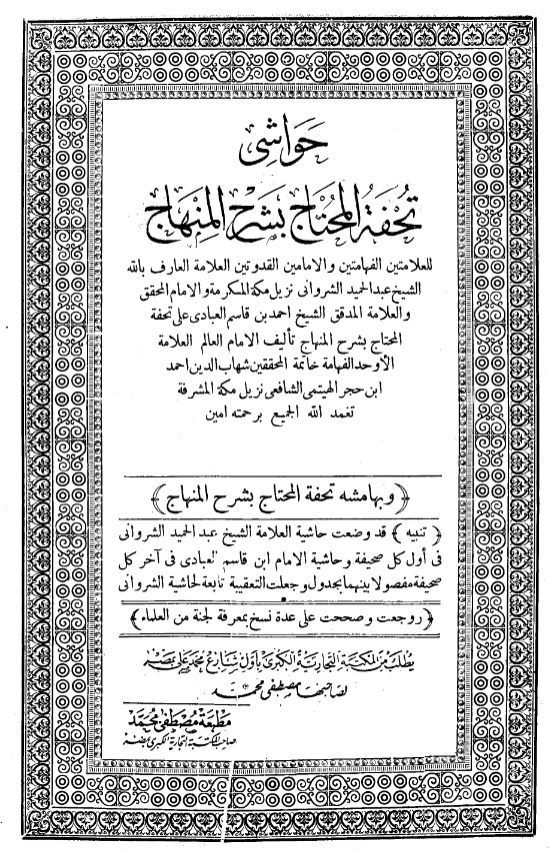 حواشى
تُحْفَةُ المُحْتَاجِ بشَرْحِ المِنْهَاج
للعلامتين الفهامتين والامامين القدوتين العلامة العارف بالله
الشيخ عبد الحميد الشروانى نزيل مكة المكرمة والامام المحقق
والعلامة المدقق الشيخ احمد بن قاسم العبادى على تحفة
المحتاج بشرح المنهاج تأليف الامام العالم العلامة
الأوحد الفهامة خاتمة المحققين شهاب الدين احمد
ابن حجر الهيتمى الشافعى نزيل مكة المشرفة
تغمد الله الجميع برحمته امين
﴿وبهامشه تحفة المحتاج بشرح المنهاج﴾
﴿تنبيه﴾ قد وضعت حاشية العلامة الشيخ عبد الحميد الشروانى
فى أول كل صحيفة وحاشية الامام ابن قاسم العبادى فى آخر كل
صحيفة مفصولا بينهما بجدول وجعلت التعقيبة تابعة لحاشية الشروانى
﴿روجعت وصححت على عدة نسخ بمعرفة لجنة من العلماء﴾
يطلب من المكتبة التجارية الكبرى بأول شارع محمد على بمصر
لصاحبها مصطفى محمد
مطبعة مصطفى محمد
صاحب المكتبة التجارية الكبرى بمصر